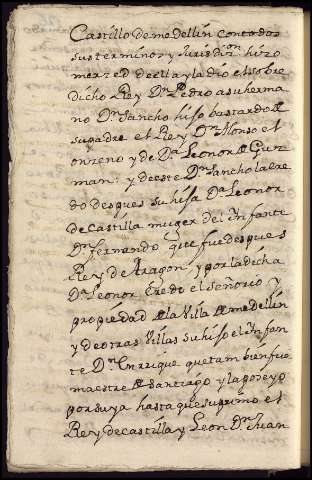 Castillo de medellin con todos
sus terminos y Jurisdi.on hizo
merced de ella y la dio el sobre
dicho Rey Dn Pedro a su herma
no Dn Sancho hijo bastardo de
su padre el Rey Dn Alonso el
onzeno y de Da Leonor de Guz
man: y de este Dn Sancho la ere
do despues su hija Da Leonor
de Castilla muger del Infante
Dn fernando que fue despues
Rey de Aragon y por la dicha
Da Leonor eredo el señorio y
propiedad de la Villa de medellin
y de otras Villas su hijo el Infan
te Dn Enrrique que tambien fue
maestre de Santiago y la poseyo
por suya hasta que su primo el
Rey de Castilla y Leon Dn Juan